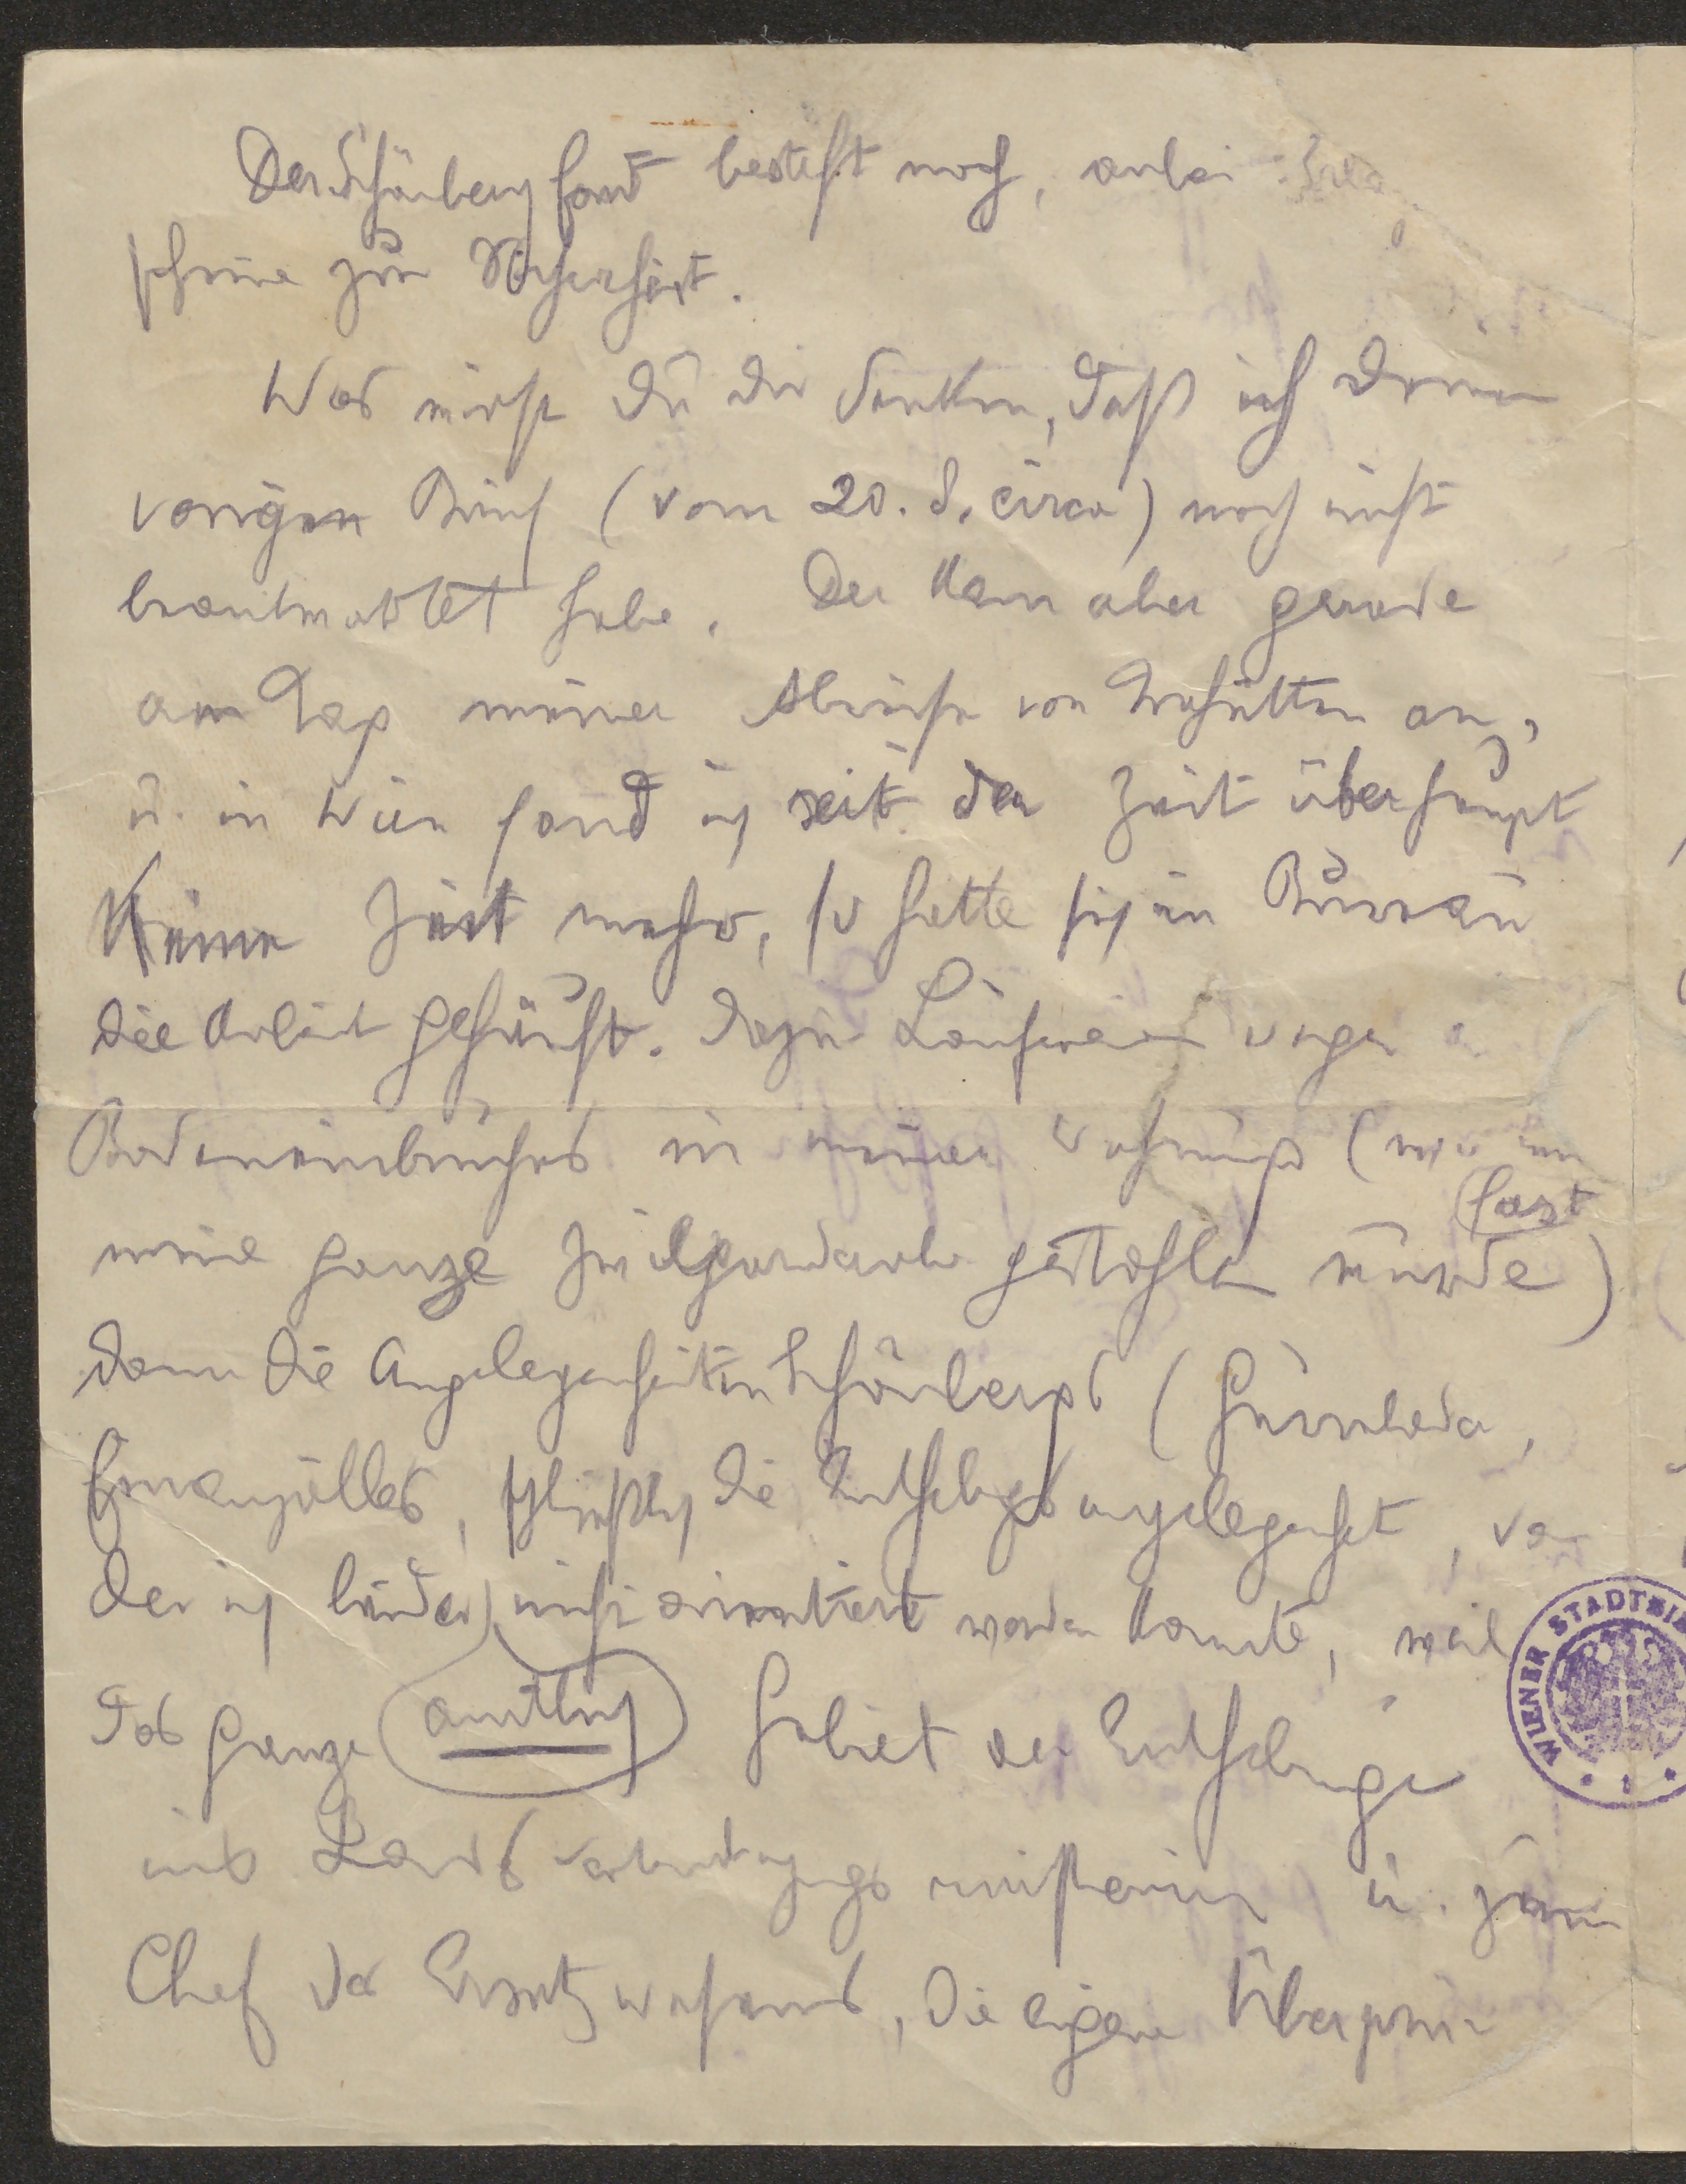 Der Schönbergfond besteht noch, anbei Erlag
scheine zur Sicherheit.
Was wirst Du Dir denken, daß ich Deinen
vorigen Brief (vom 20. 8. circa) noch nicht
beantwortet habe. Der kam aber gerade
am Tag meiner Abreise von Trahütten an,
u. in Wien fand ich seit der Zeit überhaupt
keine Zeit mehr, so hatte sich im Bureau
die Arbeit gehäuft. Dazu Laufereien wegen
Bodeneinbruches in meiner Wohnung (wo mir
fast
meine ganze Zivilgarderobe gestohlen wurde)
dann die Angelegenheiten Schönbergs (Gurrelieder,
Finanzielles, schließlich die Enthebungsangelegenheit, von
der ich leider nicht orientiert werden konnte, weil
das ganze amtlich Gebiet der Enthebungen
ins Landesverteidigungsministerium u. zum
Chef des Ersatzwesens, die eigene Überprü
WIENER STADTBI